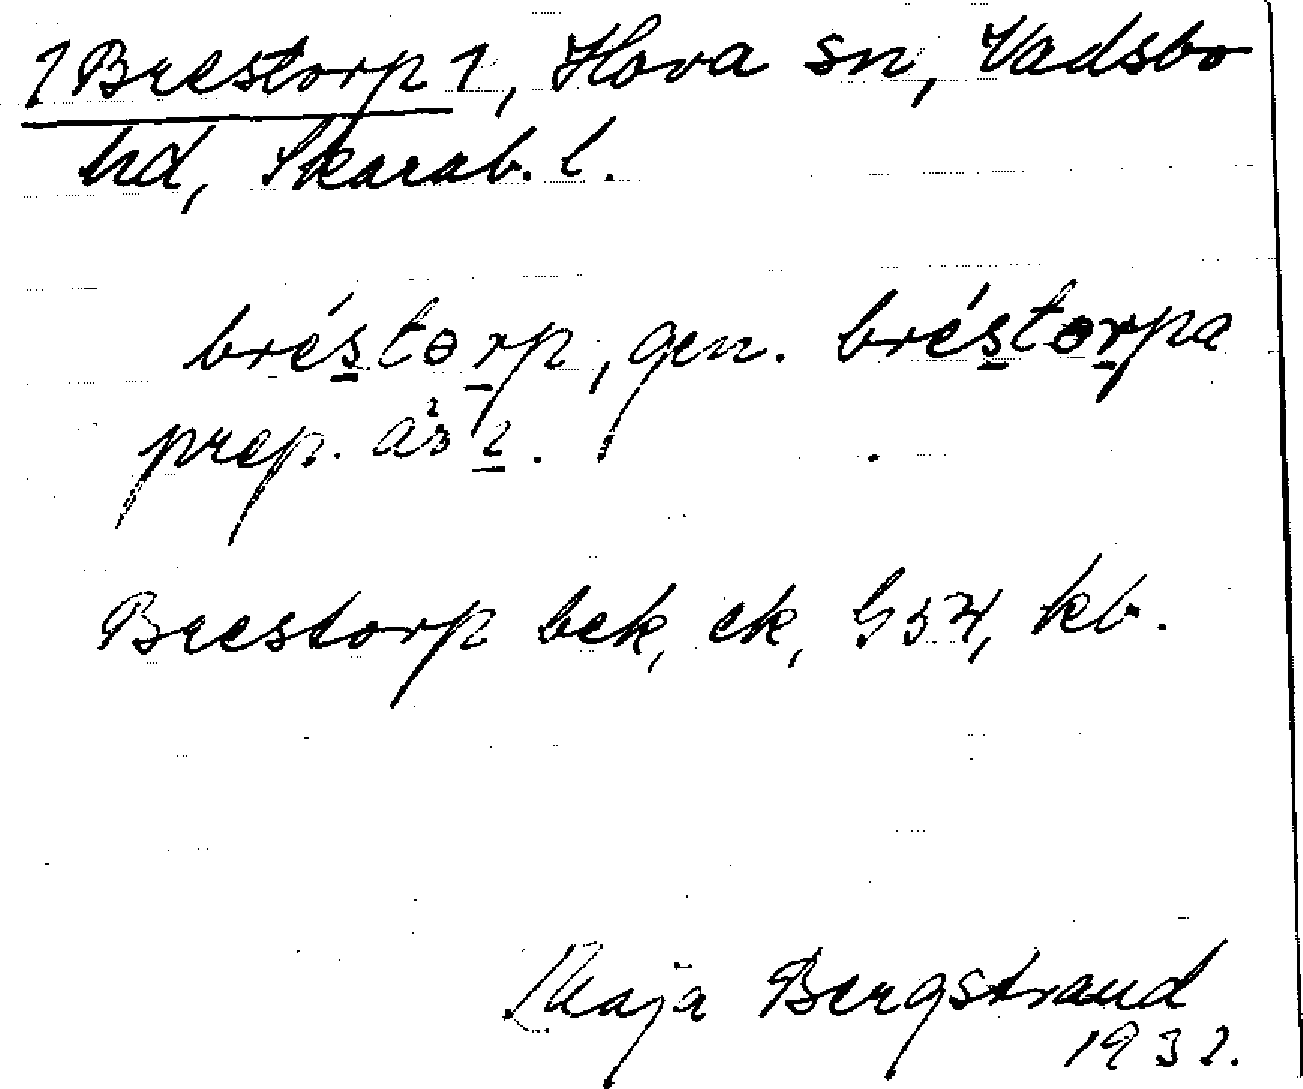 1 Brestorp 1, Hova sn, Vadsbo
hd, Skarab. l.
bréstorp, gen. bréstorpa
prep.
Brestorp bek, ek, G 54, kb.
Maja Bergstrand
1932.